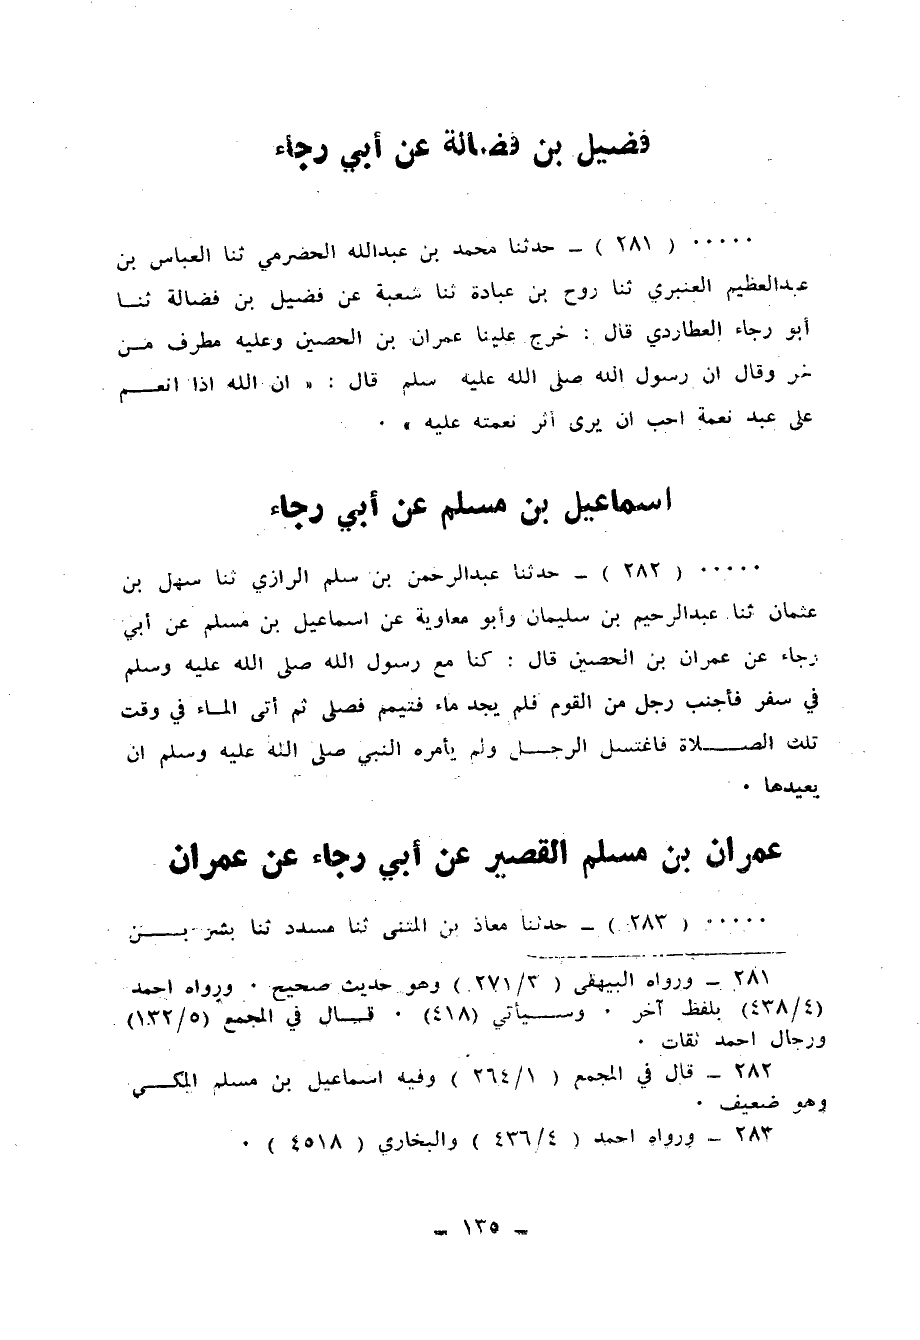 فضيل بن فضالة عن أبي رجاء
٠٠٠٠٠ ( ٢٨١ ) ـ حدثنا محمد بن عبدالله الحضرمي ثنا العباس بن
عبدالعظيم العنبري ثنا روح بن عبادة ثنا شعبة عن فضيل بن فضالة ثنــا
أبو رجاء العطاردي قال : خرج علينا عمران بن الحصين وعليه مطرف مـن
خز وقال ان رسول الله صلى الله عليه سلم قال : « ان الله اذا انعـــم
على عبد نعمة احب ان يرى أثر نعمته عليه » ٠
اسماعيل بن مسلم عن أبي رجاء
٠٠٠٠٠ ( ٢٨٢ ) ـ حدثنا عبدالرحمن بن سلم الرازي ثنا سهل بن
عثمان ثنا عبدالرحيم بن سليمان وأبو معاوية عن اسماعيل بن مسلم عن أبي
رجاء عن عمران بن الحصين قال : كنا مع رسول الله صلى الله عليه وسلم
في سفر فأجنب رجل من القوم فلم يجد ماء فتيمم فصلى ثم أتى المـاء في وقت
تلك الصـــــلاة فاغتسل الرجـــل ولم يأمره النبي صلى الله عليه وسلم ان
يعيدها ٠
عمران بن مسلم القصير عن أبي رجاء عن عمران
٠٠٠٠٠ ( ٢٨٣ ) ـ حدثنا معاذ بن المثنى ثنا مسدد ثنا بشر بـــــن
٢٨١ ـ ورواه البيهقى ( ٢٧١/٣ ) وهو حديث صحيح ٠ ورواه احمد
(٤٣٨/٤) بلفظ آخر ٠ وســـيأتي (٤١٨) ٠ قـــال في المجمع (١٣٢/٥)
ورجال احمد ثقات ٠
٢٨٢ ـ قال في المجمع ( ٢٦٤/١ ) وفيه اسماعيل بن مسلم المكـــي
وهو ضعيف ٠
٢٨٣ ـ ورواه احمد ( ٤٣٦/٤ ) والبخاري ( ٤٥١٨ ) ٠
ـ ١٣٥ ـ